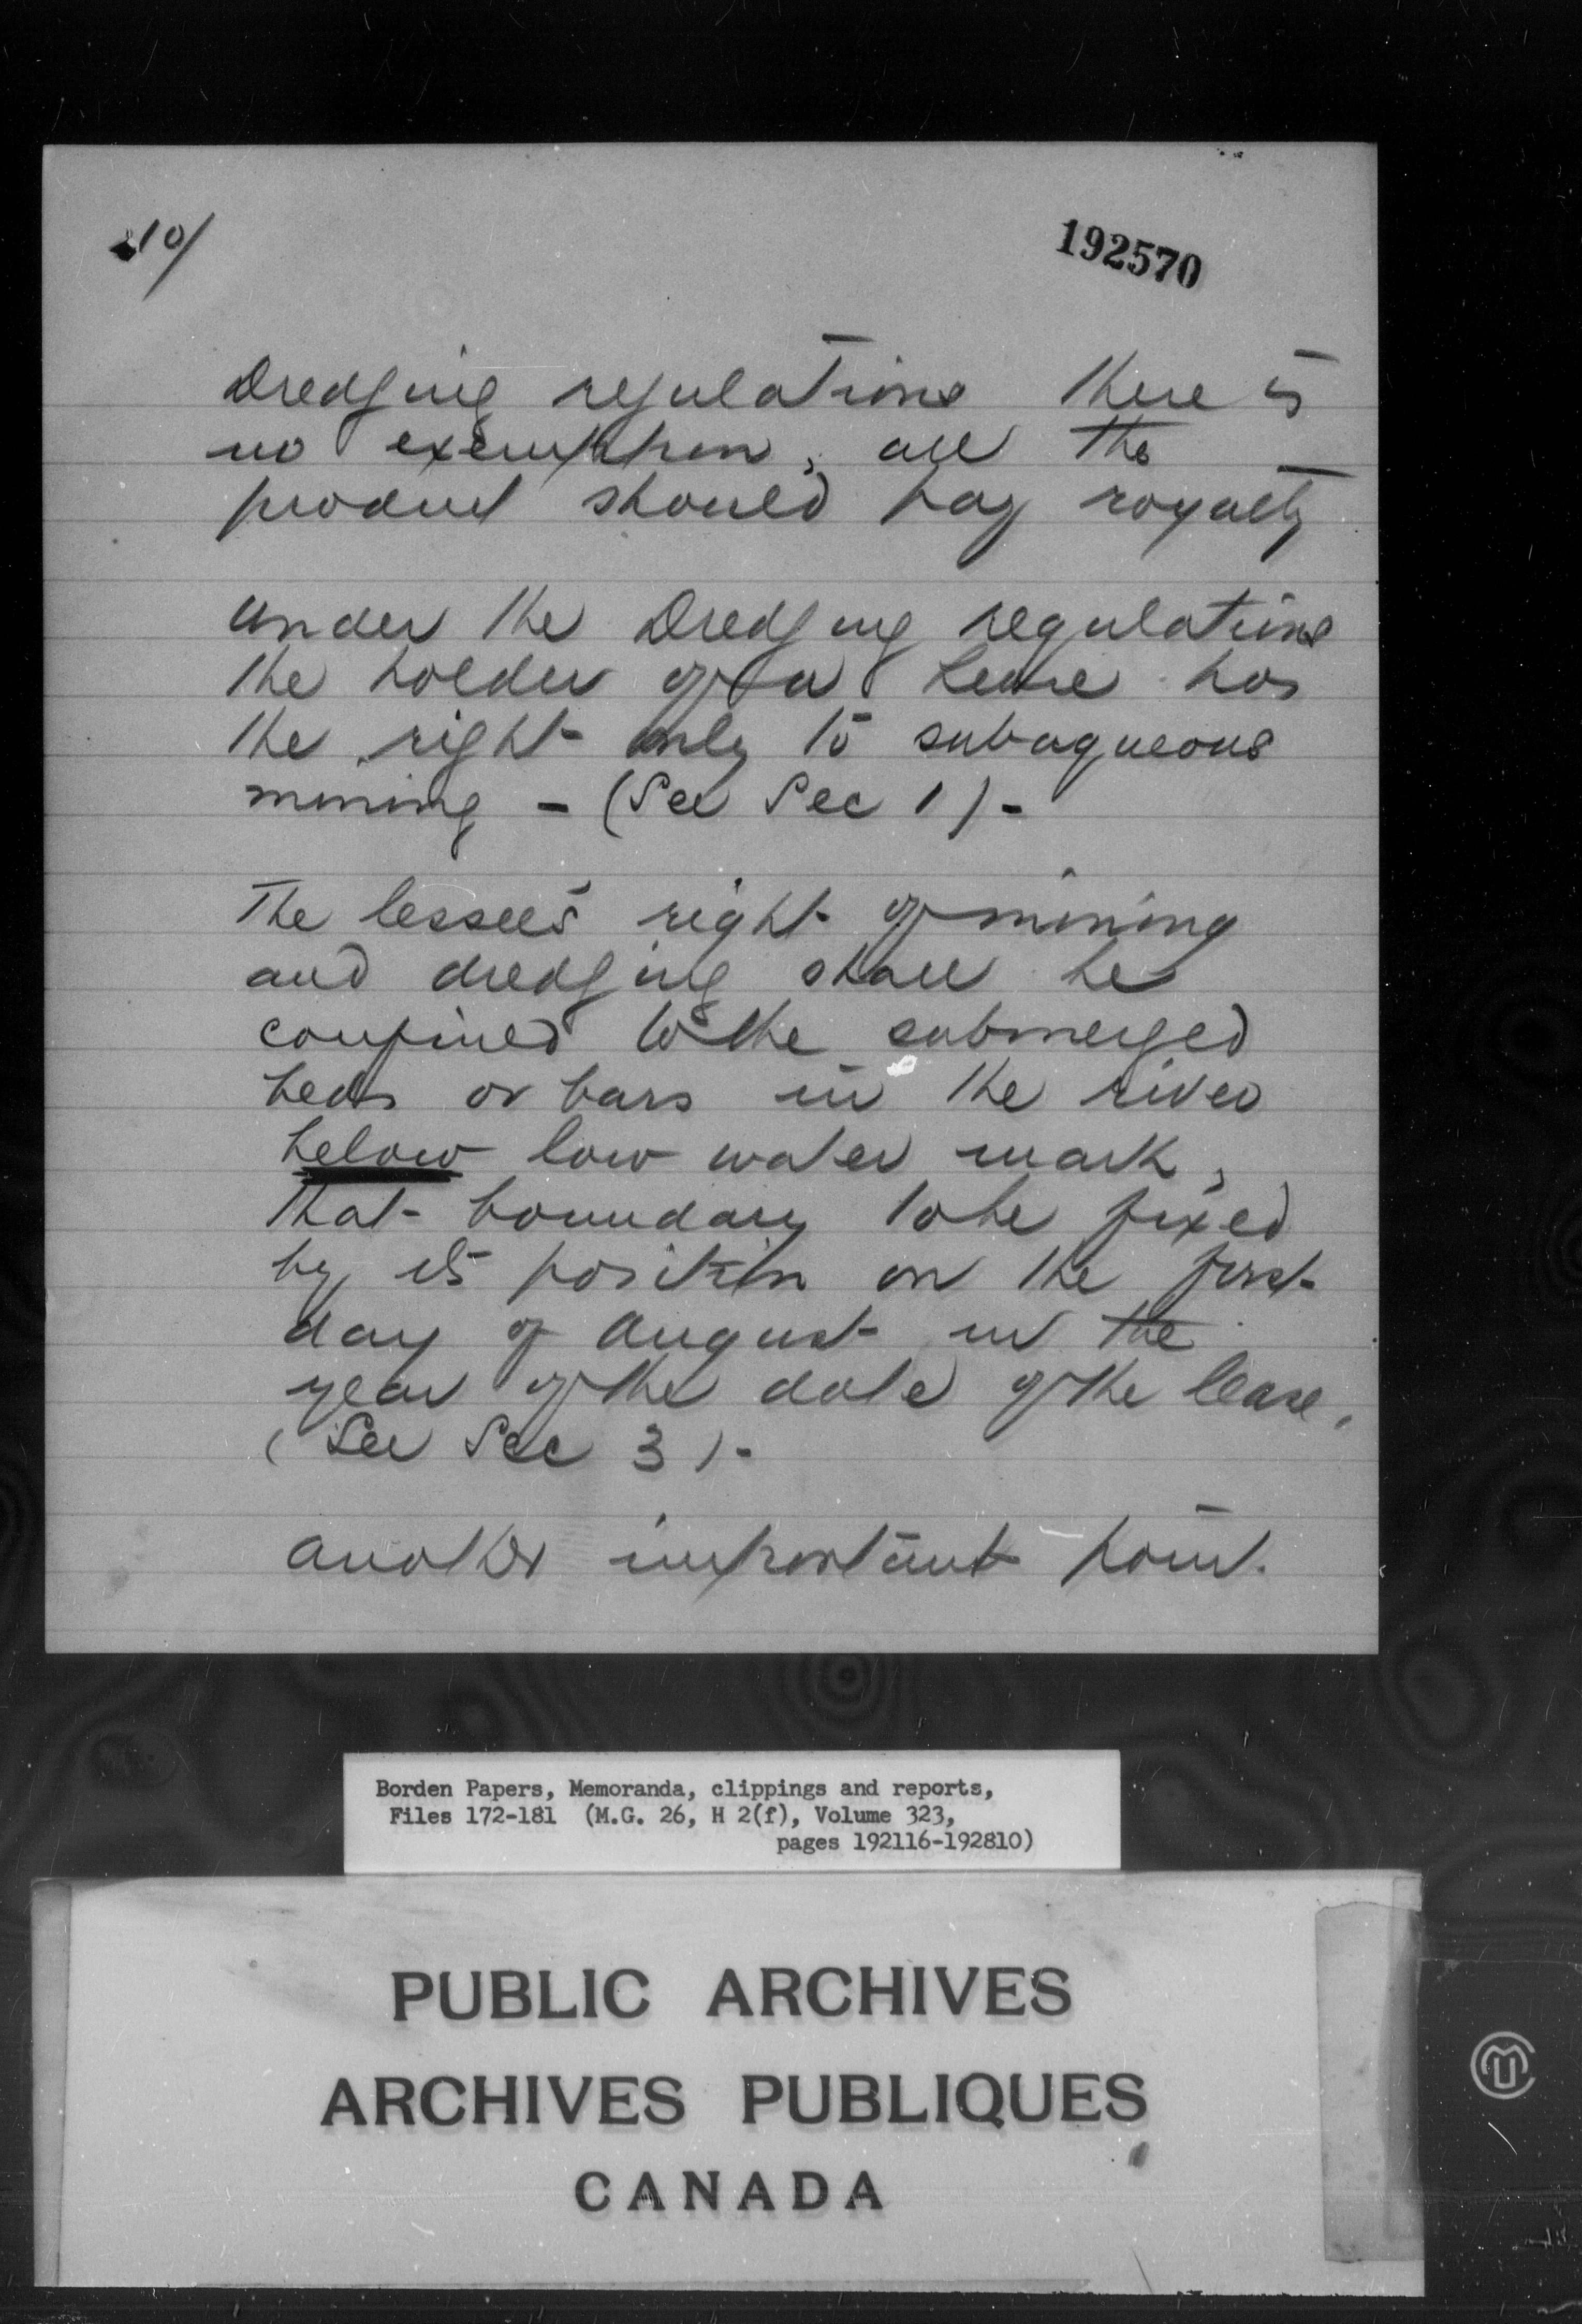 10/
192570
Dredging regulations there is
no exemption, all the
product should pay royalty
Under the Dredging regulations
the holder of a lease has
the right only to subaqueous
mining - (See Sec 1) -
The lessee's right of mining
and dredging shall be
confined to the submerged
beds or bars in the river
below low water mark,
that boundary to be fixed
by its position on the first
day of August in the
year of the date of the lease.
(See Sec 3) -
Another important point.
Borden Papers, Memoranda, clippings and reports,
Files 172-181 (M.G. 26, H 2(f), Volume 323,
pages 192116-192810)
PUBLIC ARCHIVES
ARCHIVES PUBLIQUES
CANADA